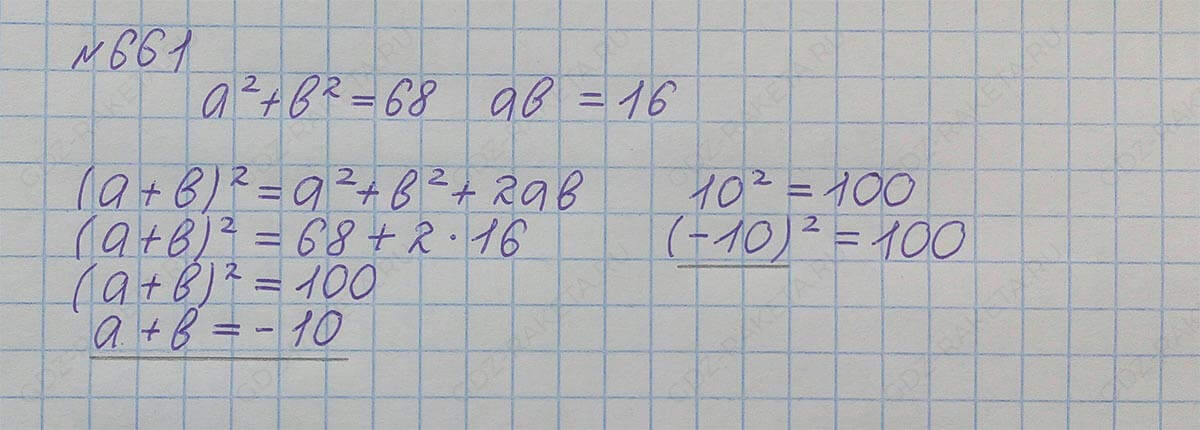 №661
a²+b²=68 ab =16
(a+b)²=a²+b²+2ab 10²=100
(a+b)²=68+2·16 (-10)²=100
(a+b)²=100
a+b=-10